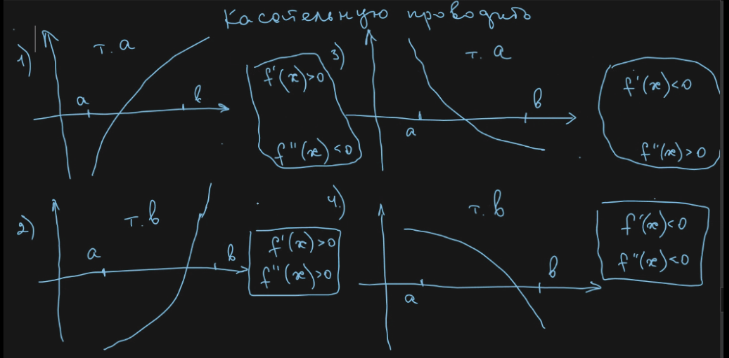 Касательную проводить
1)
т. a
a
b
f'(x)>0
f''(x)<0
3)
т. a
a
b
f'(x)<0
f''(x)>0
2)
т. b
a
b
f'(x)>0
f''(x)>0
4.)
т. b
a
b
f'(x)<0
f''(x)<0